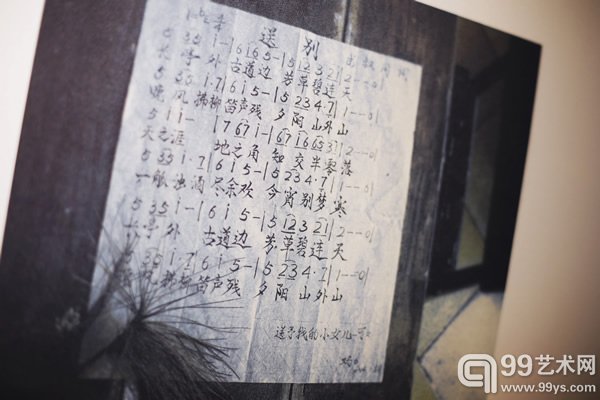 1=♭E 4/4 送别
5 35 i - | 6 i 5 - | 5 12 3 21 | 2 - - 0 |
长 亭 外 古道边 芳草碧连天
5 35 i·7 | 6 i 5 - | 5 23 4·7 | 1 - - 0 |
晚 风 拂柳笛声残 夕阳山外山
6 i i - | 7 67 i - | 67 i6 65 31 | 2 - - 0 |
天之涯 地之角 知交半零落
5 35 i·7 | 6 i 5 - | 5 23 4·7 | 1 - - 0 |
一瓢浊酒尽余欢 今宵别梦寒
5 35 i - | 6 i 5 - | 5 12 3 21 | 2 - - 0 |
长亭外 古道边 芳草碧连天
5 35 i·7 | 6 i 5 - | 5 23 4·7 | 1 - - 0 |
晚风拂柳笛声残 夕阳山外山
送予我的小女儿
99艺术网
www.99ys.com